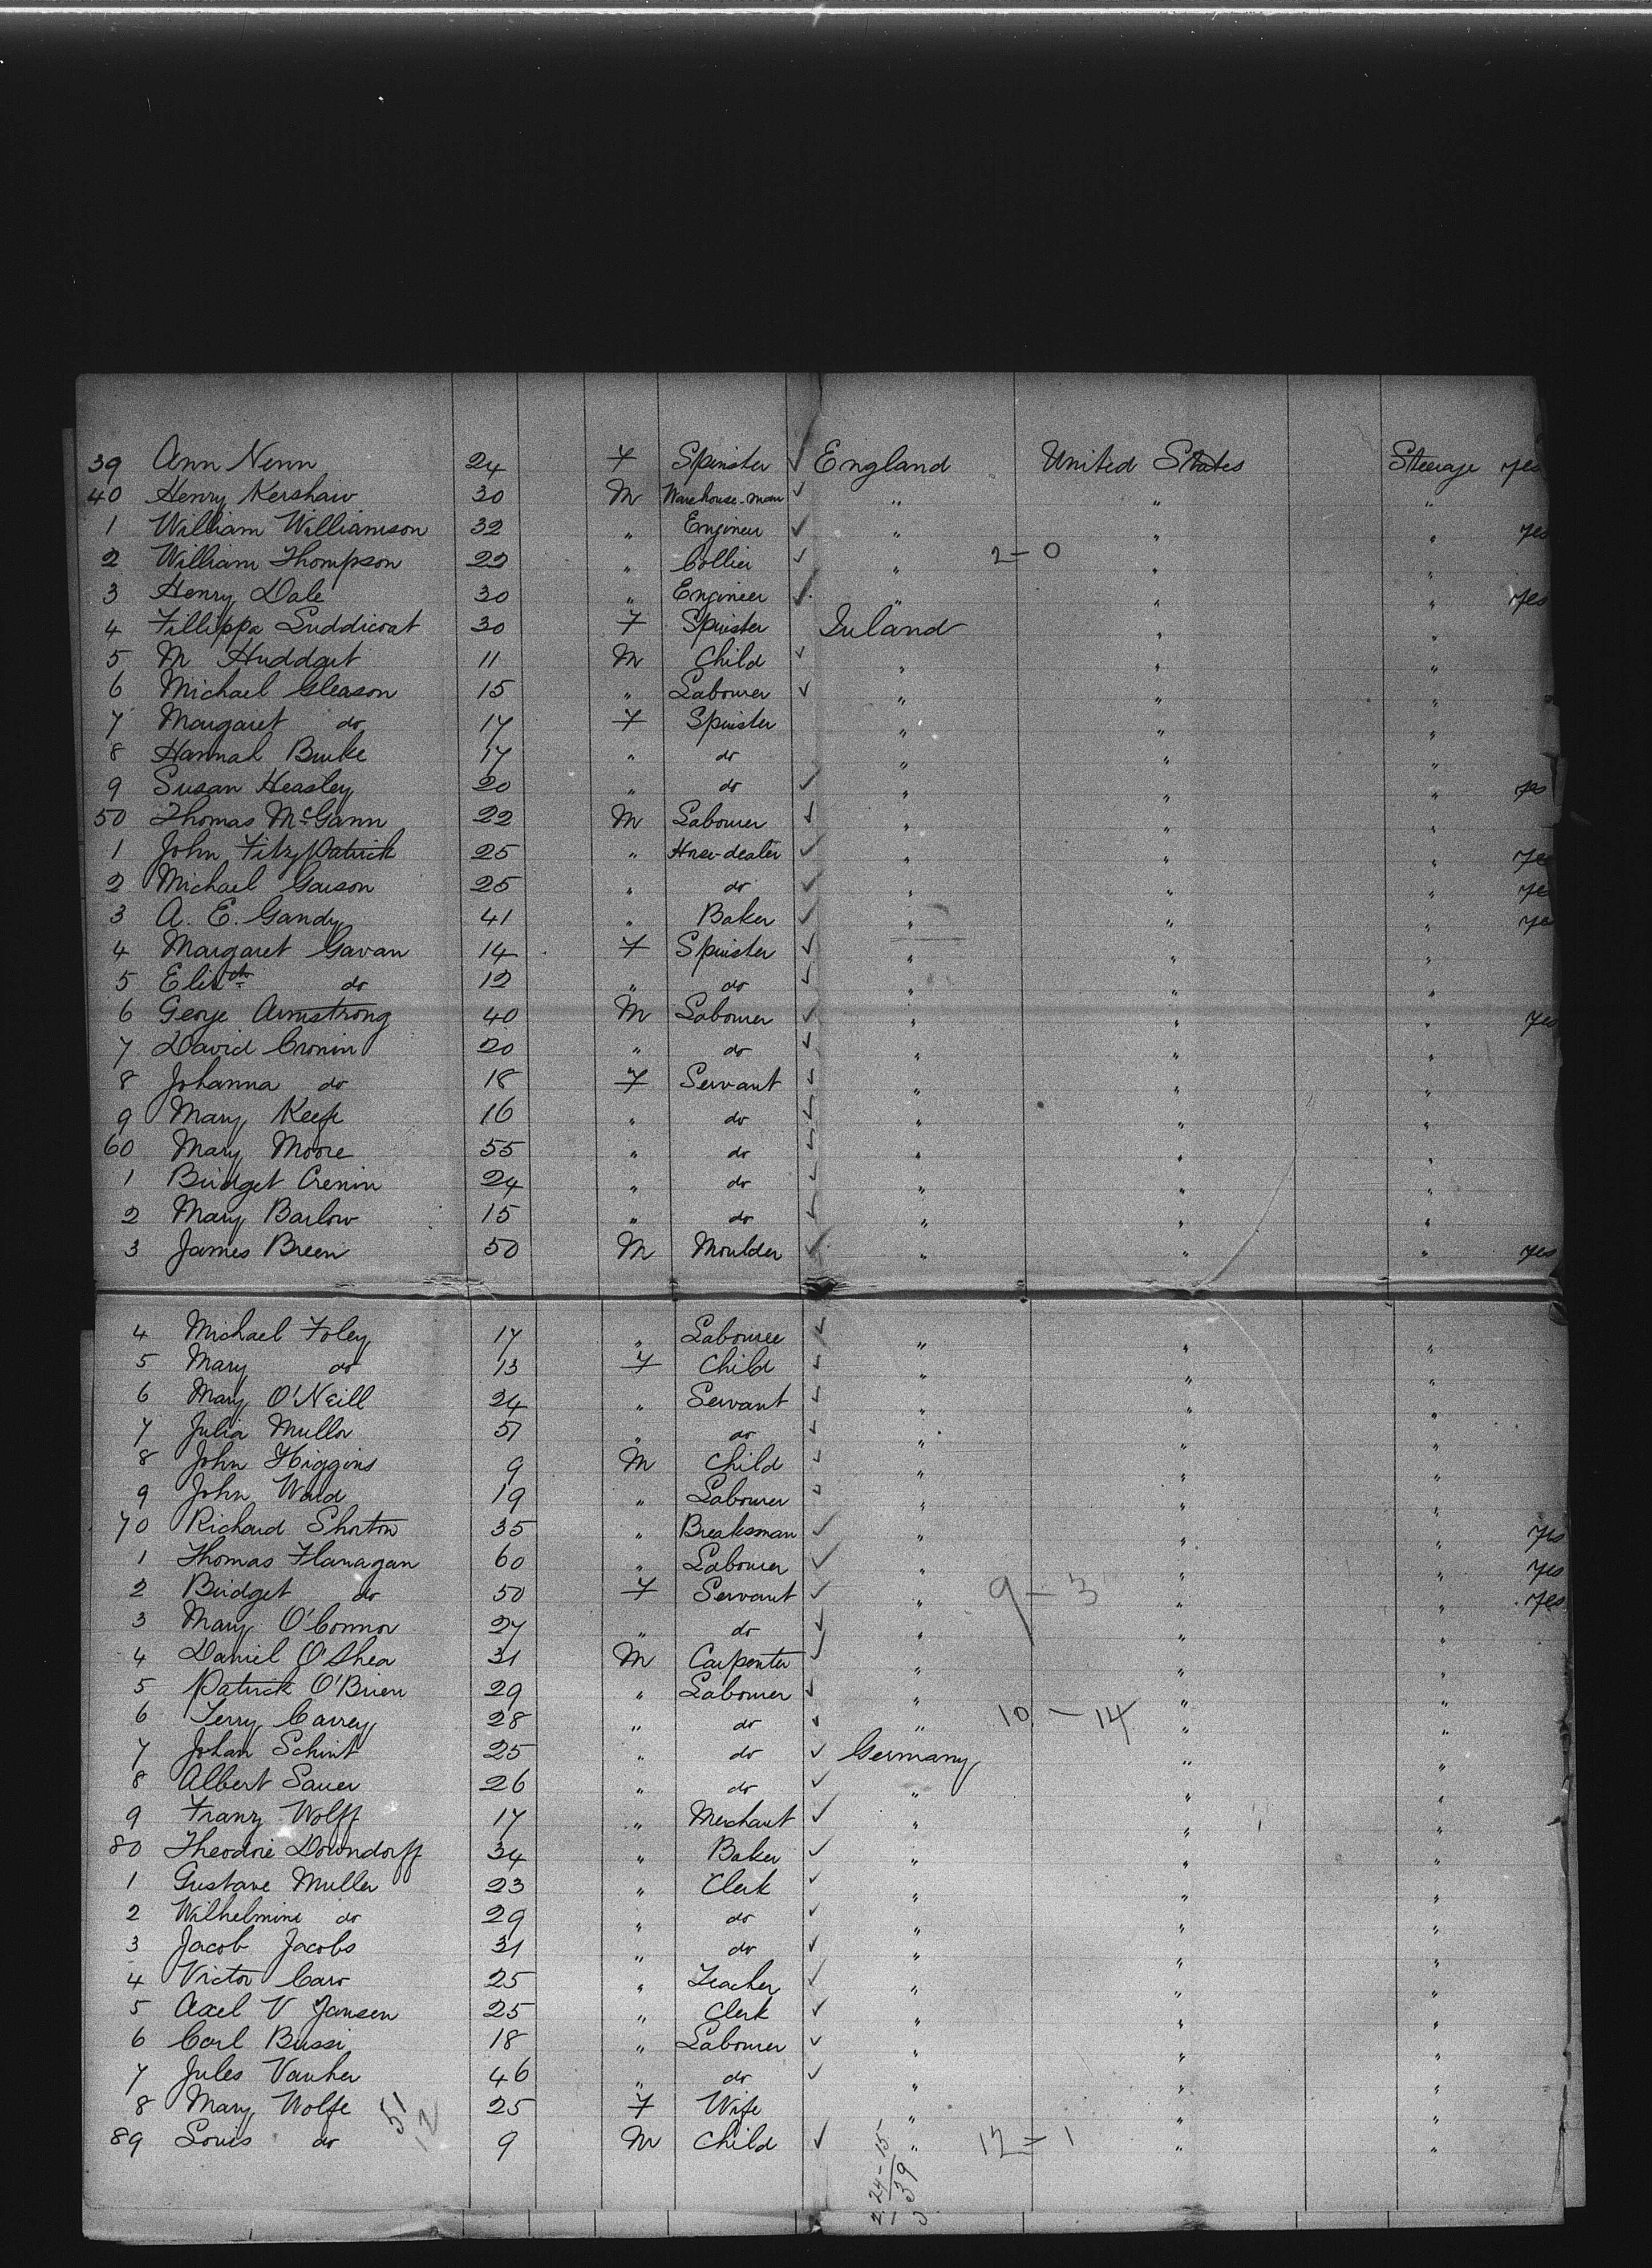 39 Ann Nenn 24 F Spinster ✓ England United States Steerage yes
40 Henry Kershaw 30 M Warehouse-man ✓ " " "
1 William Williamson 32 " Engineer ✓ " " " yes
2 William Thompson 22 " Collier ✓ " 2-0 " "
3 Henry Dale 30 " Engineer ✓ " " " yes
4 Fillippa Luddicoat 30 F Spinster Ireland " "
5 M Huddart 11 M Child ✓ " " "
6 Michael Gleason 15 " Labourer ✓ " " "
7 Margaret do 17 F Spinster " " "
8 Hannah Burke 17 " do " " "
9 Susan Heasley 20 " do ✓ " " " yes
50 Thomas McGann 22 M Labourer ✓ " " "
1 John Fitzpatrick 25 " Horse-dealer ✓ " " " yes
2 Michael Garson 25 " do ✓ " " " yes
3 A. E. Gandy 41 " Baker ✓ " " " yes
4 Margaret Gavan 14 F Spinster ✓ " " "
5 Elizth do 12 " do ✓ " " "
6 George Armstrong 40 M Labourer ✓ " " " yes
7 David Cronin 20 " do ✓ " " "
8 Johanna do 18 F Servant ✓ " " "
9 Mary Keefe 16 " do ✓ " " "
60 Mary Moore 55 " do ✓ " " "
1 Bridget Crenin 24 " do ✓ " " "
2 Mary Barlow 15 " do ✓ " " "
3 James Breen 50 M Moulder ✓ " " " yes
4 Michael Foley 17 " Labourer ✓ " " "
5 Mary do 13 F Child ✓ " " "
6 Mary O'Neill 24 " Servant ✓ " " "
7 Julia Mullor 51 " do ✓ " " "
8 John Higgins 9 M Child ✓ " " "
9 John Ward 19 " Labourer ✓ " " "
70 Richard Shorton 35 " Breaksman ✓ " " " yes
1 Thomas Flanagan 60 " Labourer ✓ " " " yes
2 Bridget do 50 F Servant ✓ " 9-3 " " yes
3 Mary O'Connor 27 " do ✓ " " "
4 Daniel O'Shea 31 M Carpenter ✓ " " "
5 Patrick O'Brien 29 " Labourer ✓ " " "
6 Terry Carrey 28 " do ✓ " 10-14 " "
7 Johan Schint 25 " do ✓ Germany " "
8 Albert Sauer 26 " do ✓ " " "
9 Franz Wolff 17 " Merchant ✓ " " "
80 Theodore Downdorff 34 " Baker ✓ " " "
1 Gustave Muller 23 " Clerk ✓ " " "
2 Wilhelmine do 29 " do ✓ " " "
3 Jacob Jacobs 31 " do ✓ " " "
4 Victor Caro 25 " Teacher ✓ " " "
5 Axel V Jansen 25 " Clerk ✓ " " "
6 Carl Bussi 18 " Labourer ✓ " " "
7 Jules Vauher 46 " do ✓ " " "
8 Mary Wolfe 51 25 F Wife " " "
89 Louis do 12 9 M Child ✓ " 12-1 " "
24-15
39